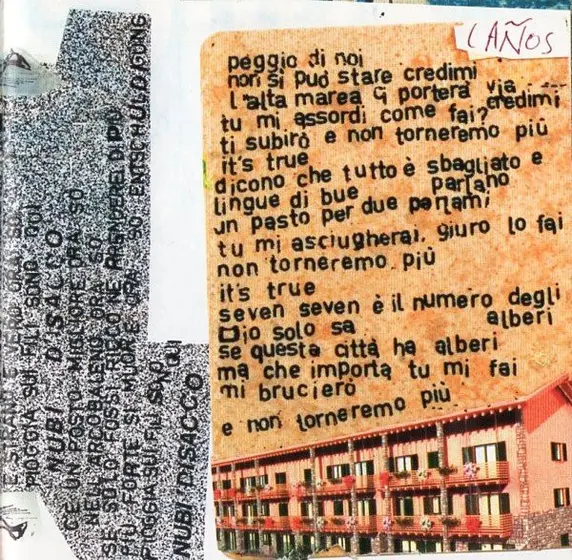 E STRANI E VERI ORA SU
PIOGGIA SUI FILI SONO QUI
NUBI DISACCO
C'E UN POSTO MIGLIORE ORA SO
NELL'ARCOBALENO ORA SO
SE SOLO FOSSI RIESCO NE PRENDEREI DI PIÙ
PIÙ FORTE SI MUORE ORA SO ENTSCHULDIGUNG
PIOGGIA SUI FILI SONO QUI
NUBI DISACCO
CAÑOS
peggio di noi
non si può stare credimi
l'alta marea ci porterà via credimi
tu mi assordi come fai?
ti subirò e non torneremo più
it's true
dicono che tutto è sbagliato e parlano
lingue di bue
un pasto per due parlami
tu mi asciugherai, giuro lo fai
non torneremo più
it's true
seven seven è il numero degli alberi
Dio solo sa
se questa città ha alberi
ma che importa tu mi fai
mi brucierò
e non torneremo più